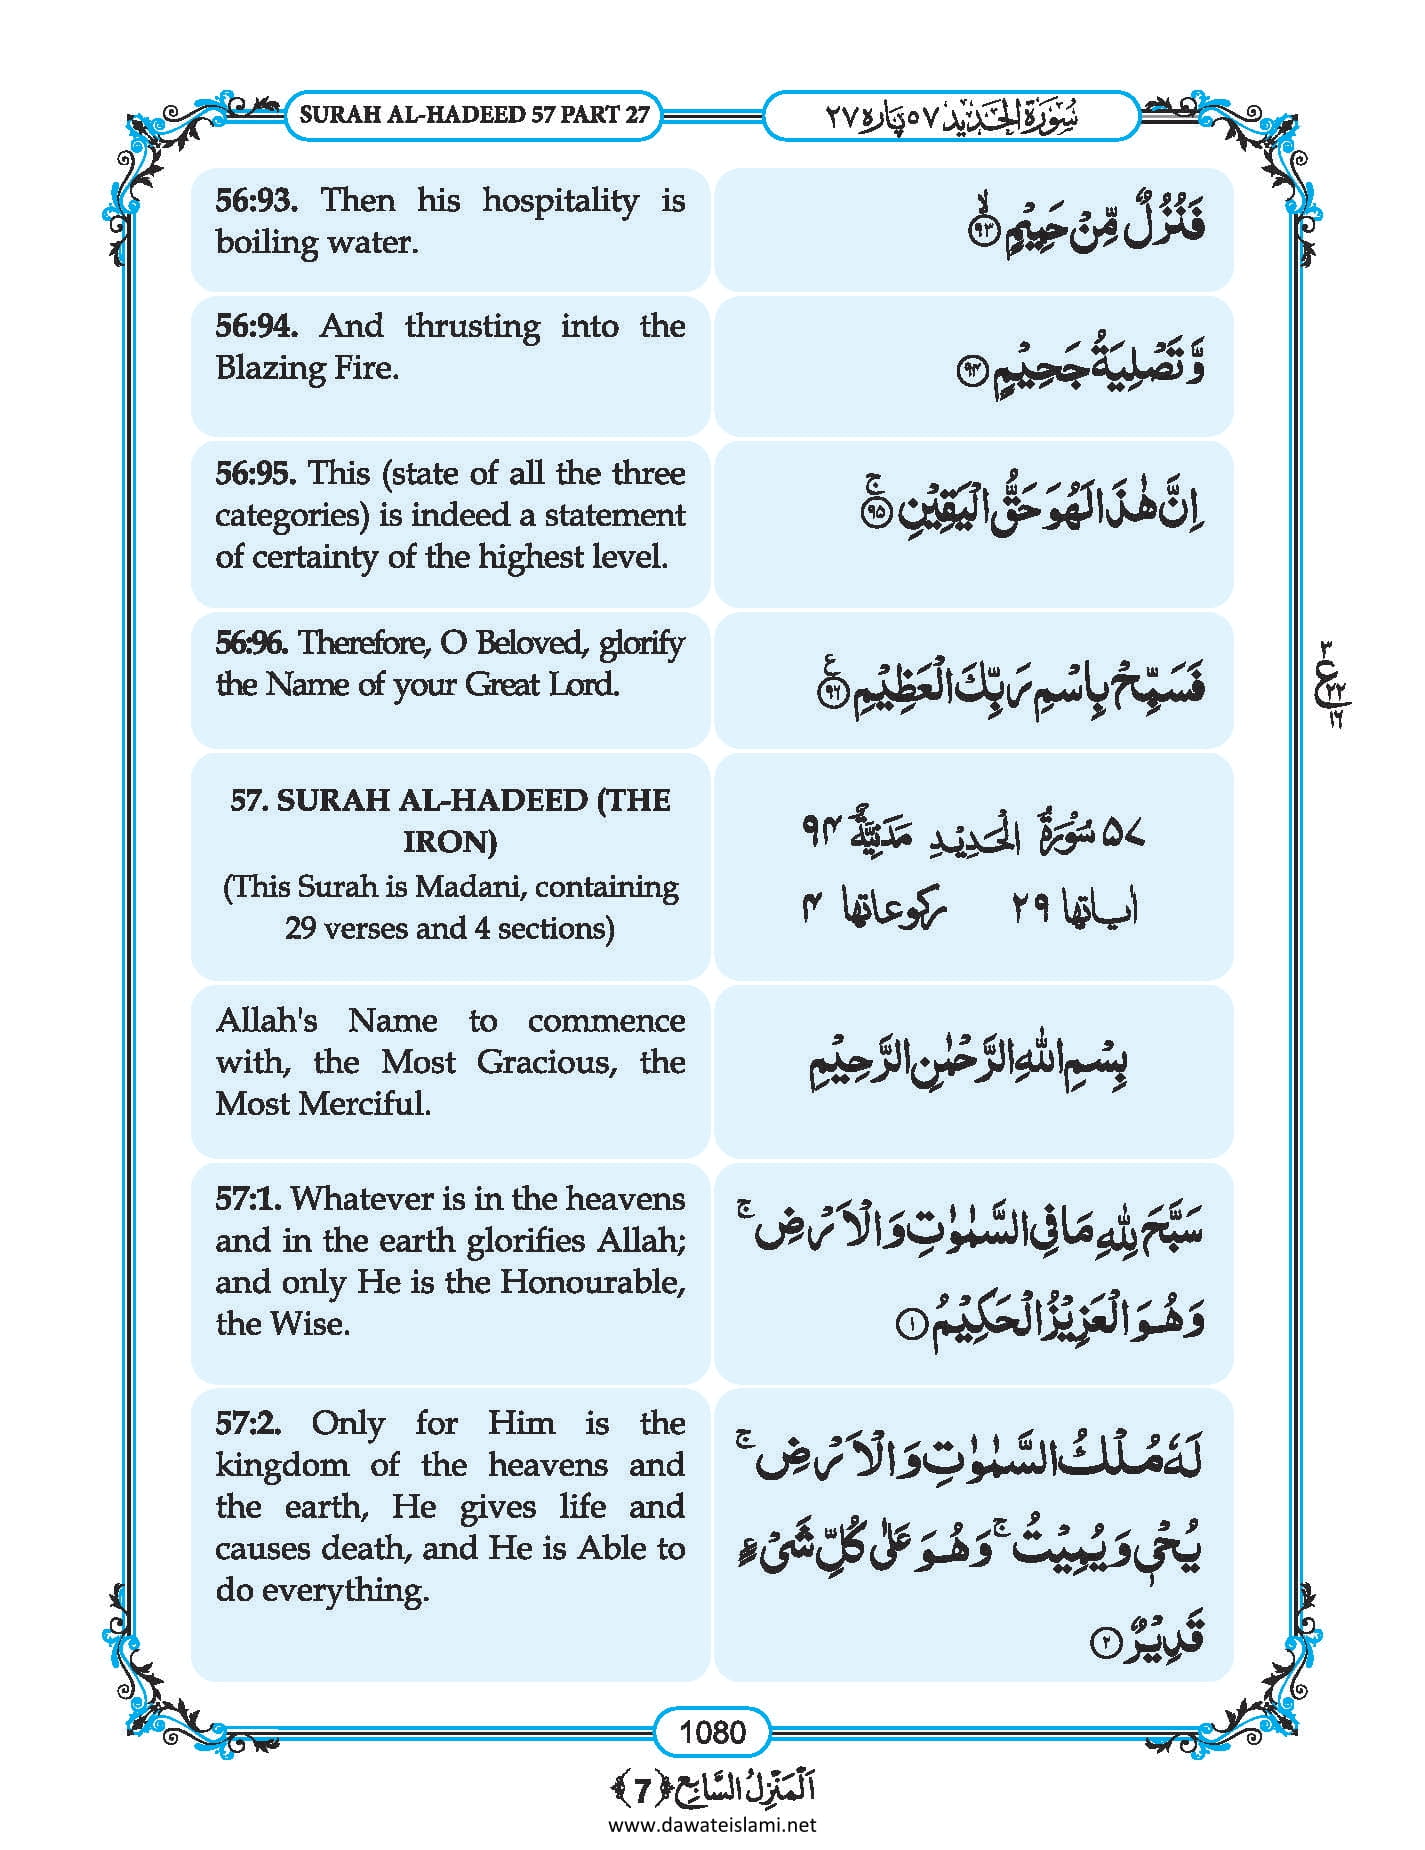 SURAH AL-HADEED 57 PART 27
سُوْرَةُ الْحَدِيْد ٥٧ پاره ٢٧
56:93. Then his hospitality is
boiling water.
فَنُزُلٌ مِّنْ حَمِيْمٍ ۙ﴿۹۳﴾
56:94. And thrusting into the
Blazing Fire.
وَّ تَصْلِيَةُ جَحِيْمٍ ﴿۹۴﴾
56:95. This (state of all the three
categories) is indeed a statement
of certainty of the highest level.
اِنَّ هٰذَا لَهُوَ حَقُّ الْيَقِيْنِ ۚ﴿۹۵﴾
56:96. Therefore, O Beloved, glorify
the Name of your Great Lord.
فَسَبِّحْ بِاسْمِ رَبِّكَ الْعَظِيْمِ ﴿۹۶﴾ ع
٣
ع
٢٢
١٦
57. SURAH AL-HADEED (THE
IRON)
(This Surah is Madani, containing
29 verses and 4 sections)
۵۷ سُوْرَةُ الْحَدِيْدِ مَدَنِيَّةٌ ۹۴
اٰياتها ۲۹ ركوعاتها ۴
Allah's Name to commence
with, the Most Gracious, the
Most Merciful.
بِسْمِ اللّٰهِ الرَّحْمٰنِ الرَّحِيْمِ
57:1. Whatever is in the heavens
and in the earth glorifies Allah;
and only He is the Honourable,
the Wise.
سَبَّحَ لِلّٰهِ مَا فِي السَّمٰوٰتِ وَ الْاَرْضِ ۚ
وَ هُوَ الْعَزِيْزُ الْحَكِيْمُ ﴿۱﴾
57:2. Only for Him is the
kingdom of the heavens and
the earth, He gives life and
causes death, and He is Able to
do everything.
لَهٗ مُلْكُ السَّمٰوٰتِ وَ الْاَرْضِ ۚ
يُحْيٖ وَ يُمِيْتُ ۚ وَ هُوَ عَلٰى كُلِّ شَيْءٍ
قَدِيْرٌ ﴿۲﴾
1080
اَلْمَنْزِلُ السَّابِع ﴿7﴾
www.dawateislami.net